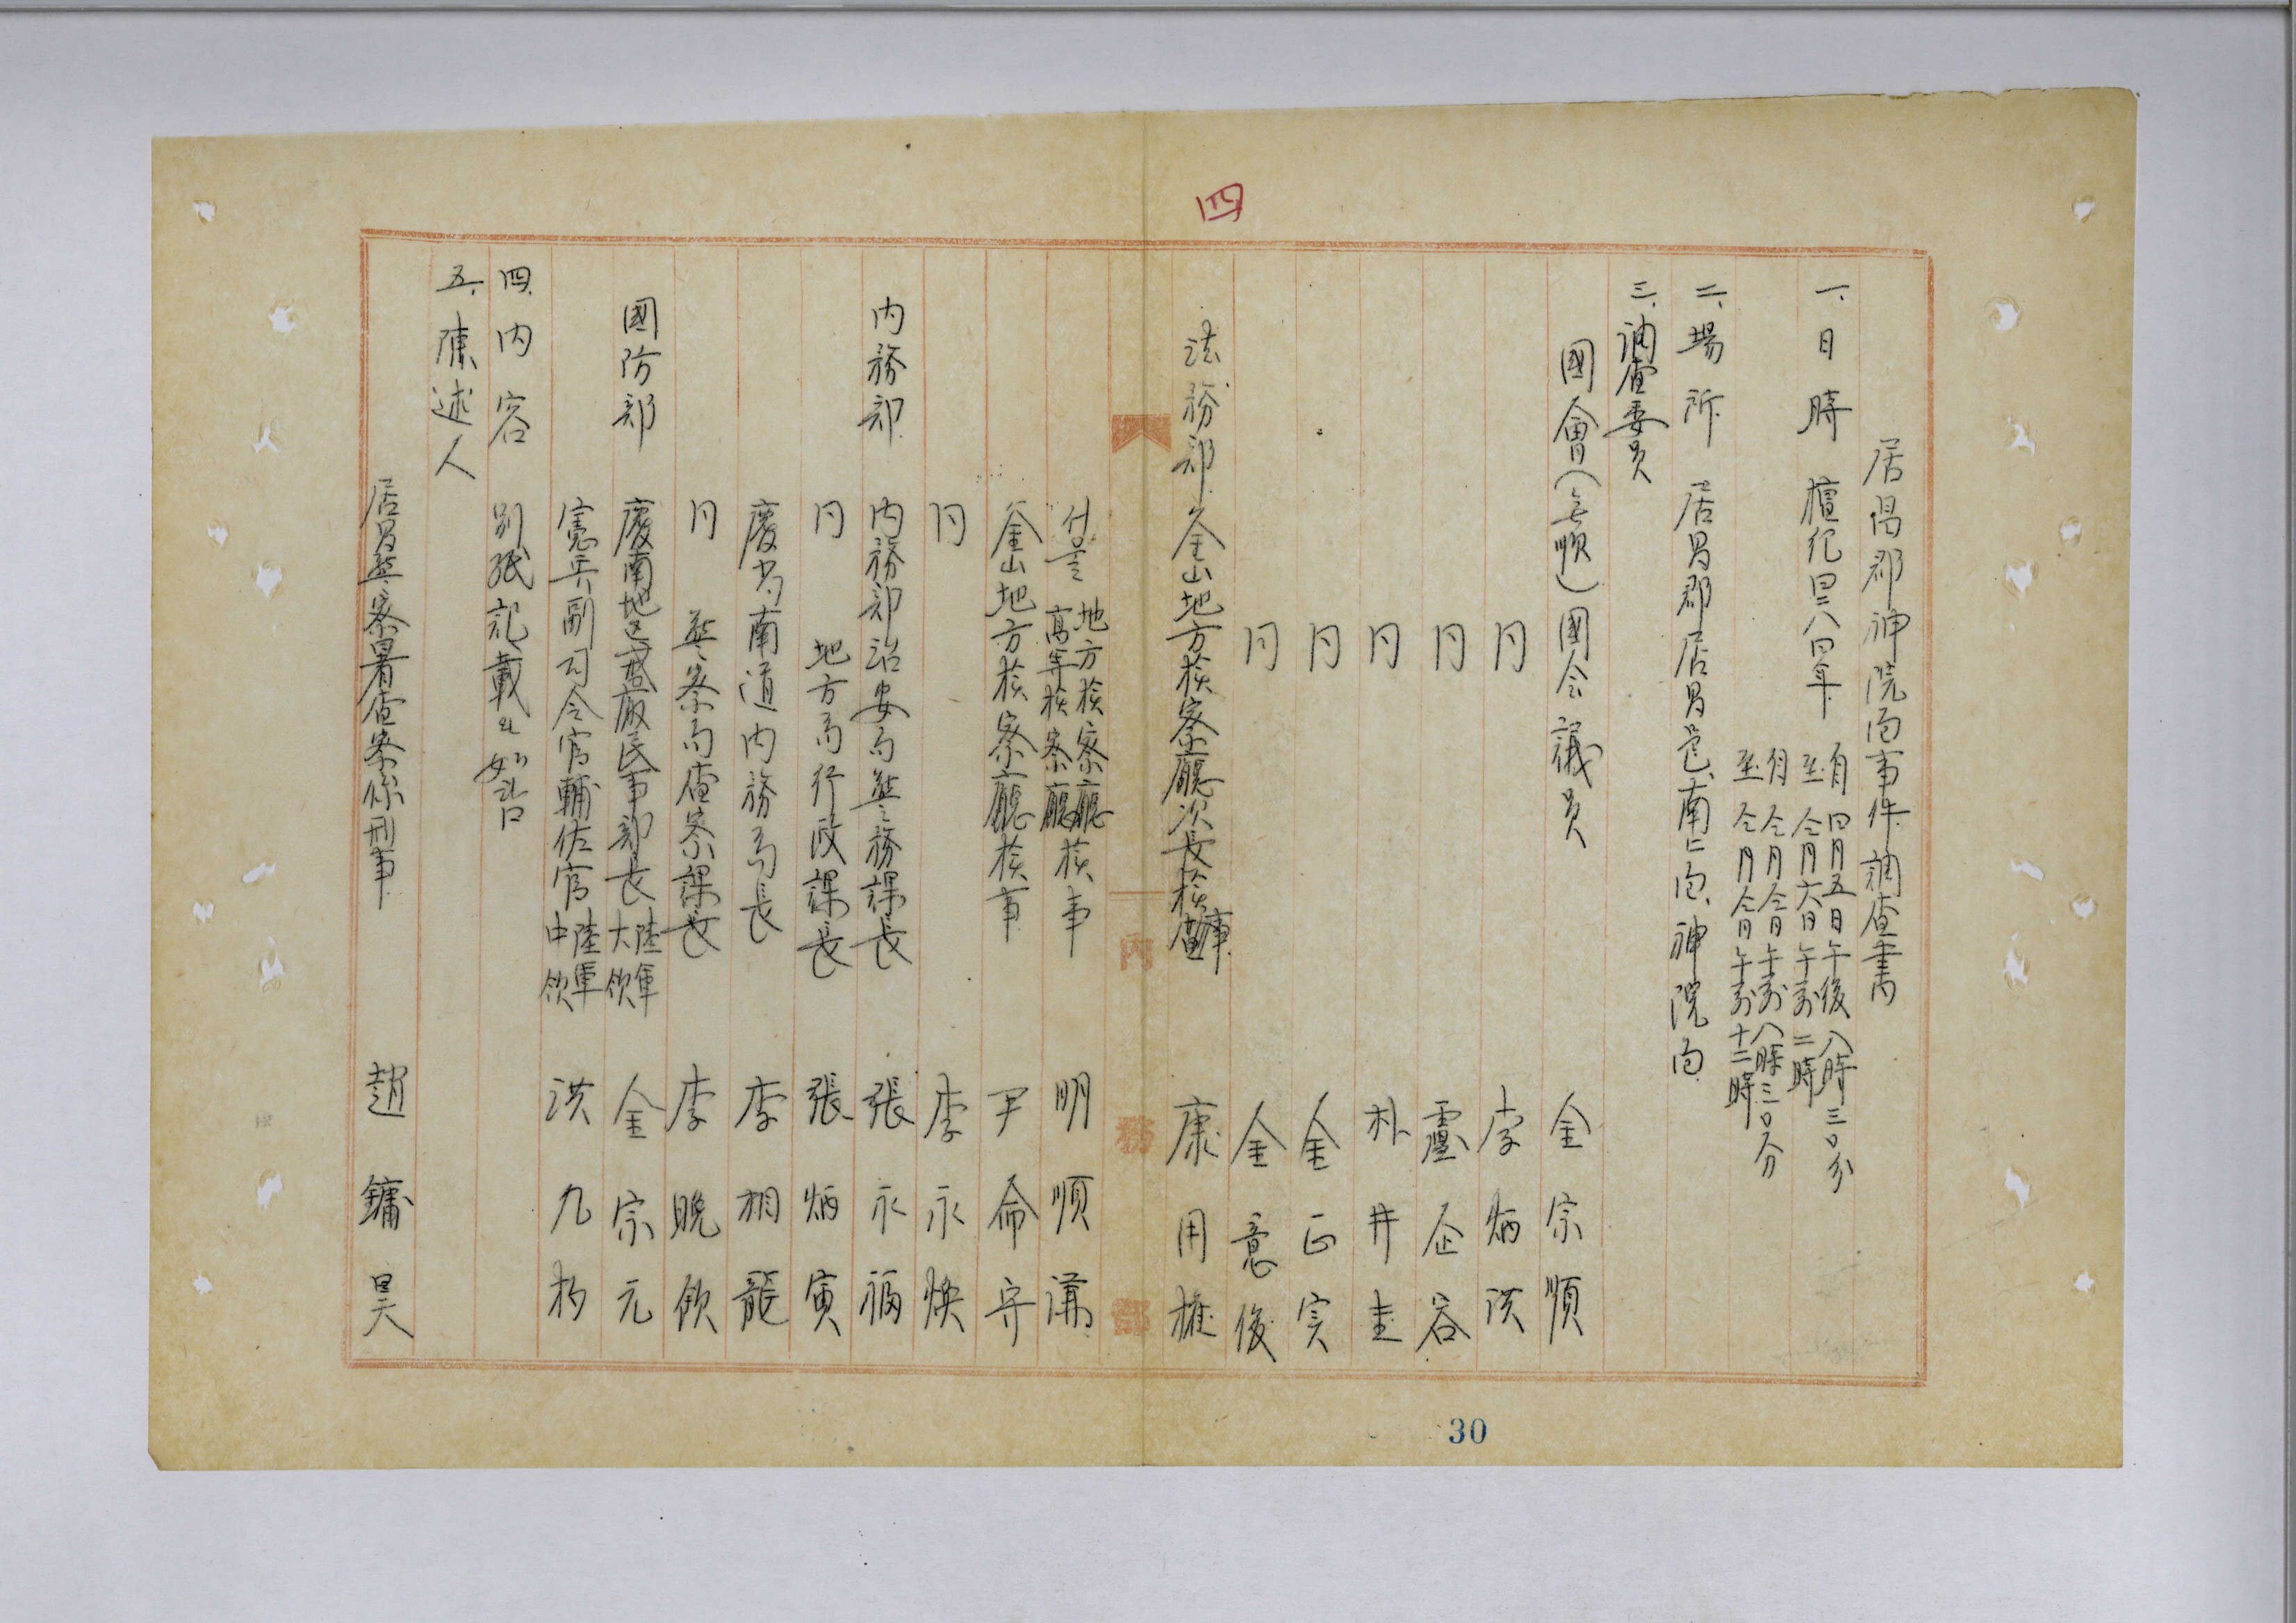 四
居昌郡神院面事件調査書
一、日時 檀紀四二八四年 自 四月五日午後八時三〇分
至 仝月六日午前二時
自 仝月仝日午前八時三〇分
至 仝月仝日午前十二時
二、場所 居昌郡居昌邑、南上面、神院面
三、調査委員
國會(無順)國会議員 金宗順
仝 李炳洪
仝 盧企容
仝 朴井圭
仝 金正实
仝 金意俊
法務部 釜山地方検察廳次長検事 康用權
内務部
地方検察廳
高等検察廳 検事 明順謙
釜山地方検察廳検事 尹命守
仝 李永煥
内務部 内務部治安局警務課長 張永福
仝 地方局行政課長 張炳寅
慶尚南道内務局長 李相龍
仝 警察局査察課長 李晩欽
國防部 慶南地区戒厳民事部長 陸軍大領 金宗元
憲兵副司令官輔佐官 陸軍中領 洪九杓
四、内容 別紙記載와如함
五、陳述人
居昌警察署査察係刑事 趙鏞昊
30